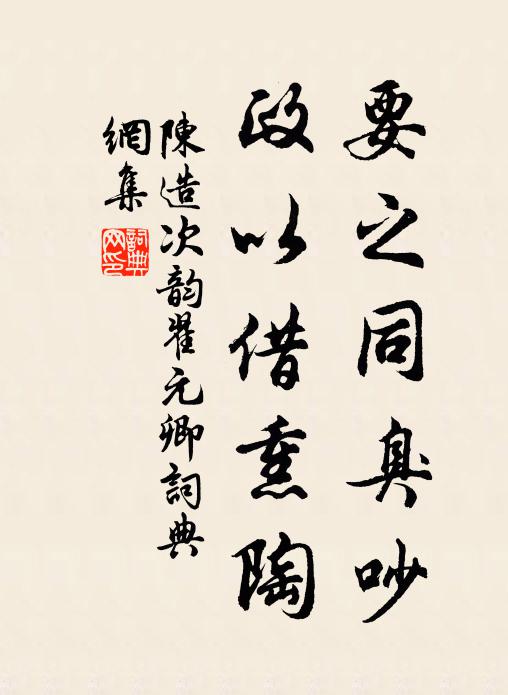 要之同臭吵
政以借熏陶
陳造次韵翟元卿詞典
網集
詞典
网印